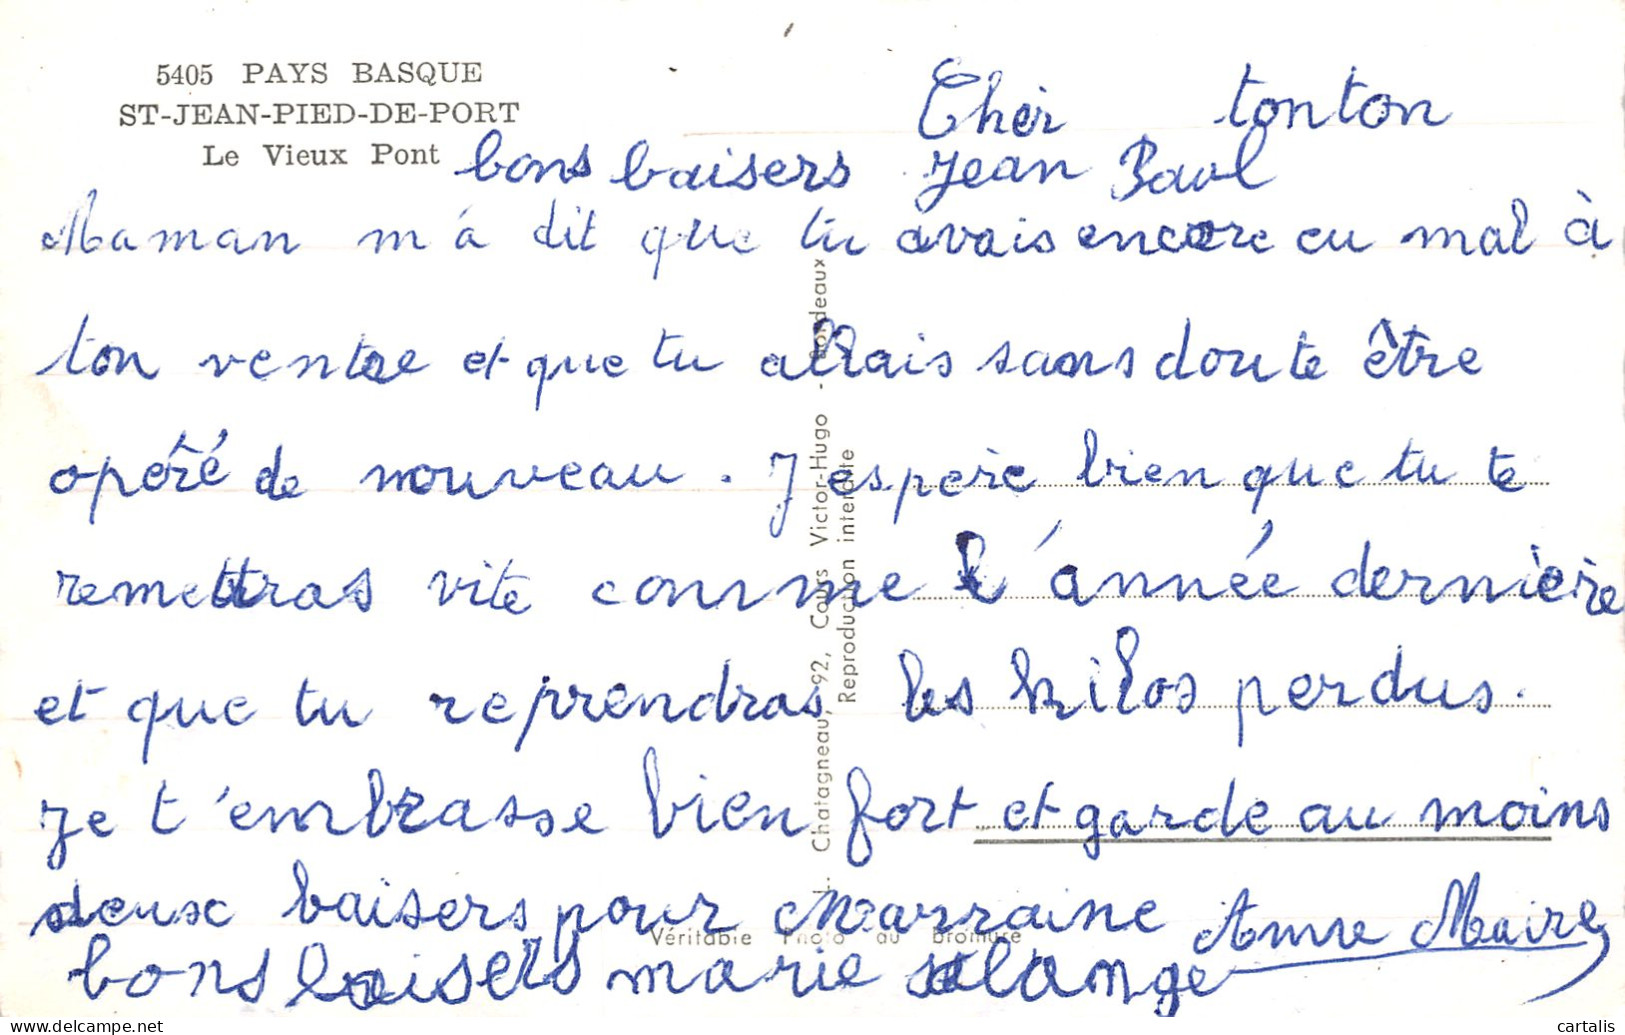 5405 PAYS BASQUE
ST-JEAN-PIED-DE-PORT
Le Vieux Pont
Cher tonton
bons baisers Jean Paul
Maman m'a dit que tu avais encore eu mal à
ton ventre et que tu allais sans doute être
opéré de nouveau. J espere bien que tu te
remettras vite comme l'année derniere
et que tu reprendras les kilos perdus.
Je t'embrasse bien fort et garde au moins
deux baisers pour Marraine Anne Marie
bons baisers marie solange
J. Chatagneau, 92, Cours Victor-Hugo - Bordeaux
Reproduction interdite
Véritable Photo au Bromure
cartalis